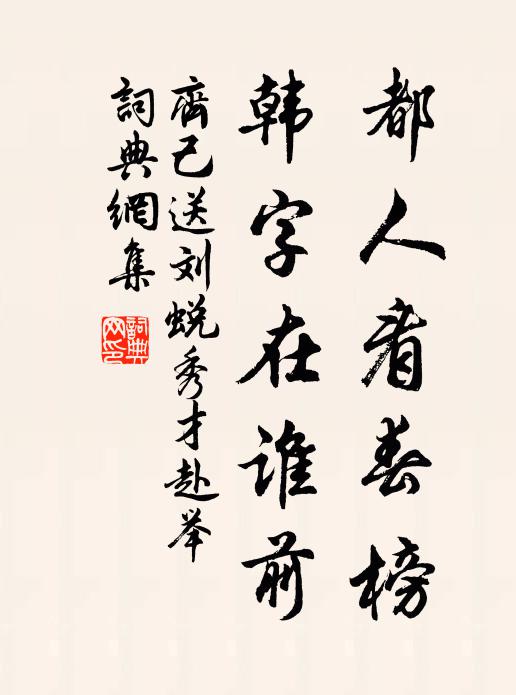 都人看春榜
韩字在谁前
齊己送刘蜕秀才赴举
詞典網集
詞典
网印